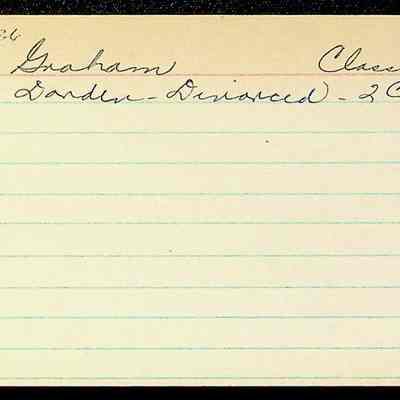 26
Graham Class
Darden - Divorced - 2 C